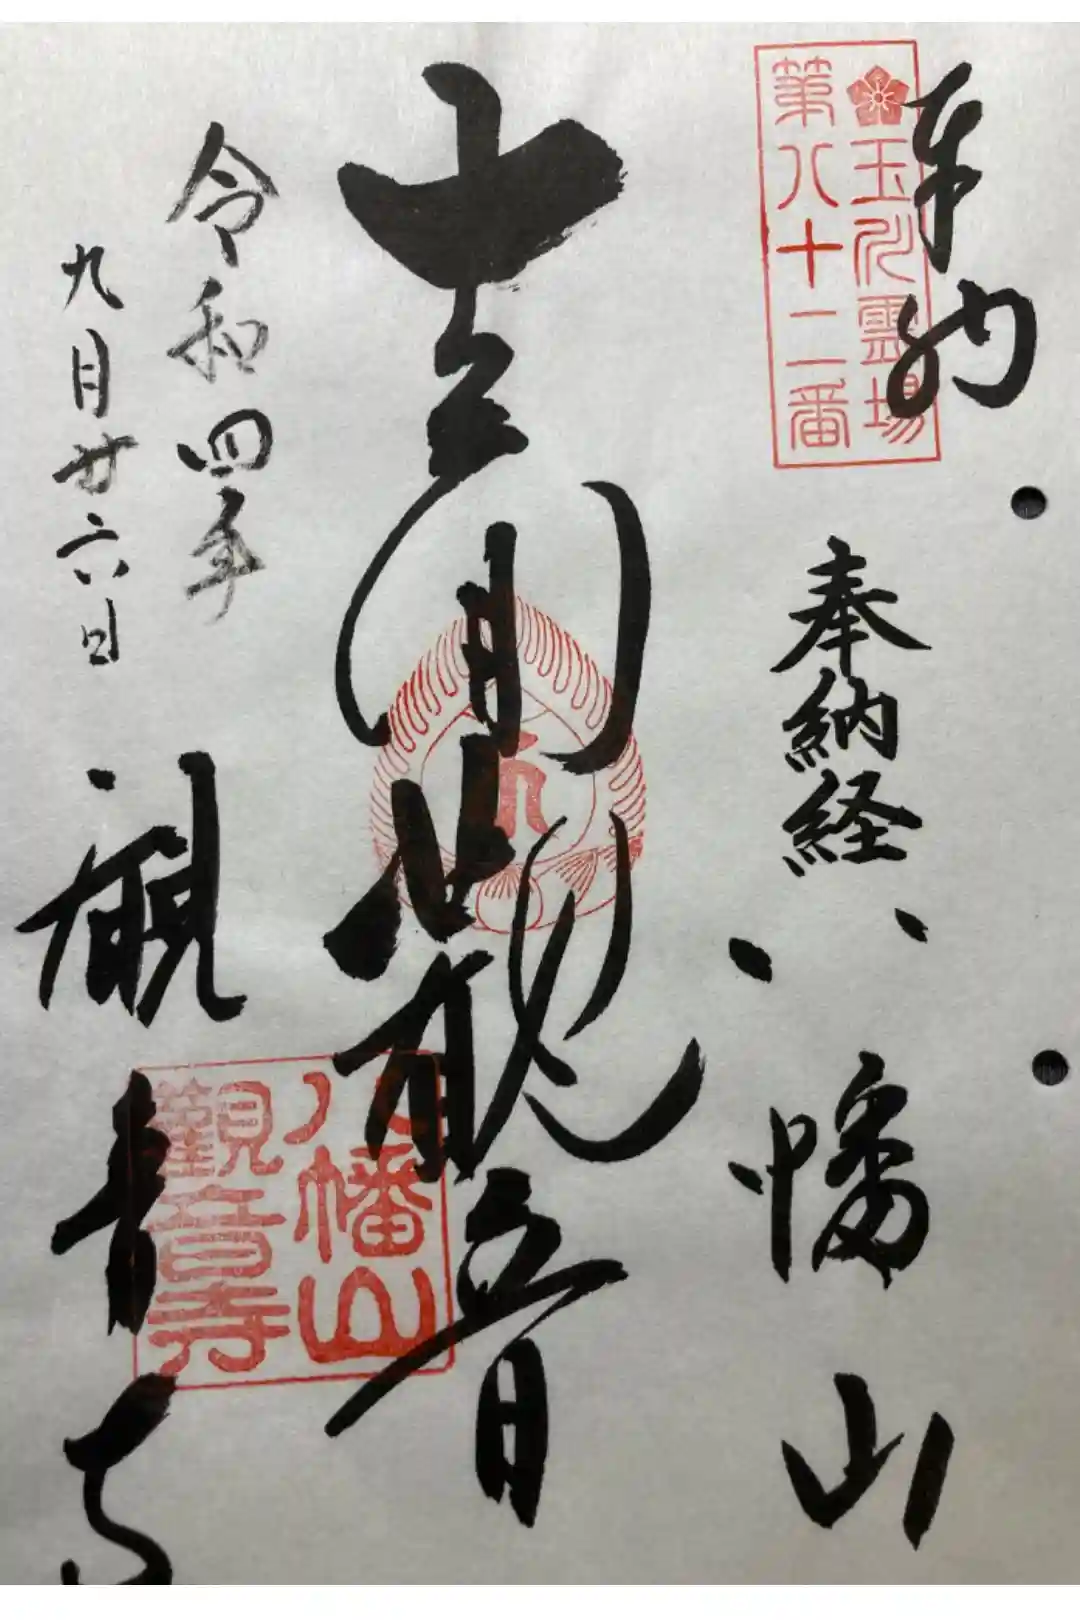 奉納
玉川霊場
第八十二番
奉納経
八幡山
十一面観音
八幡山
観音寺
令和四年
九月廿六日
観音寺